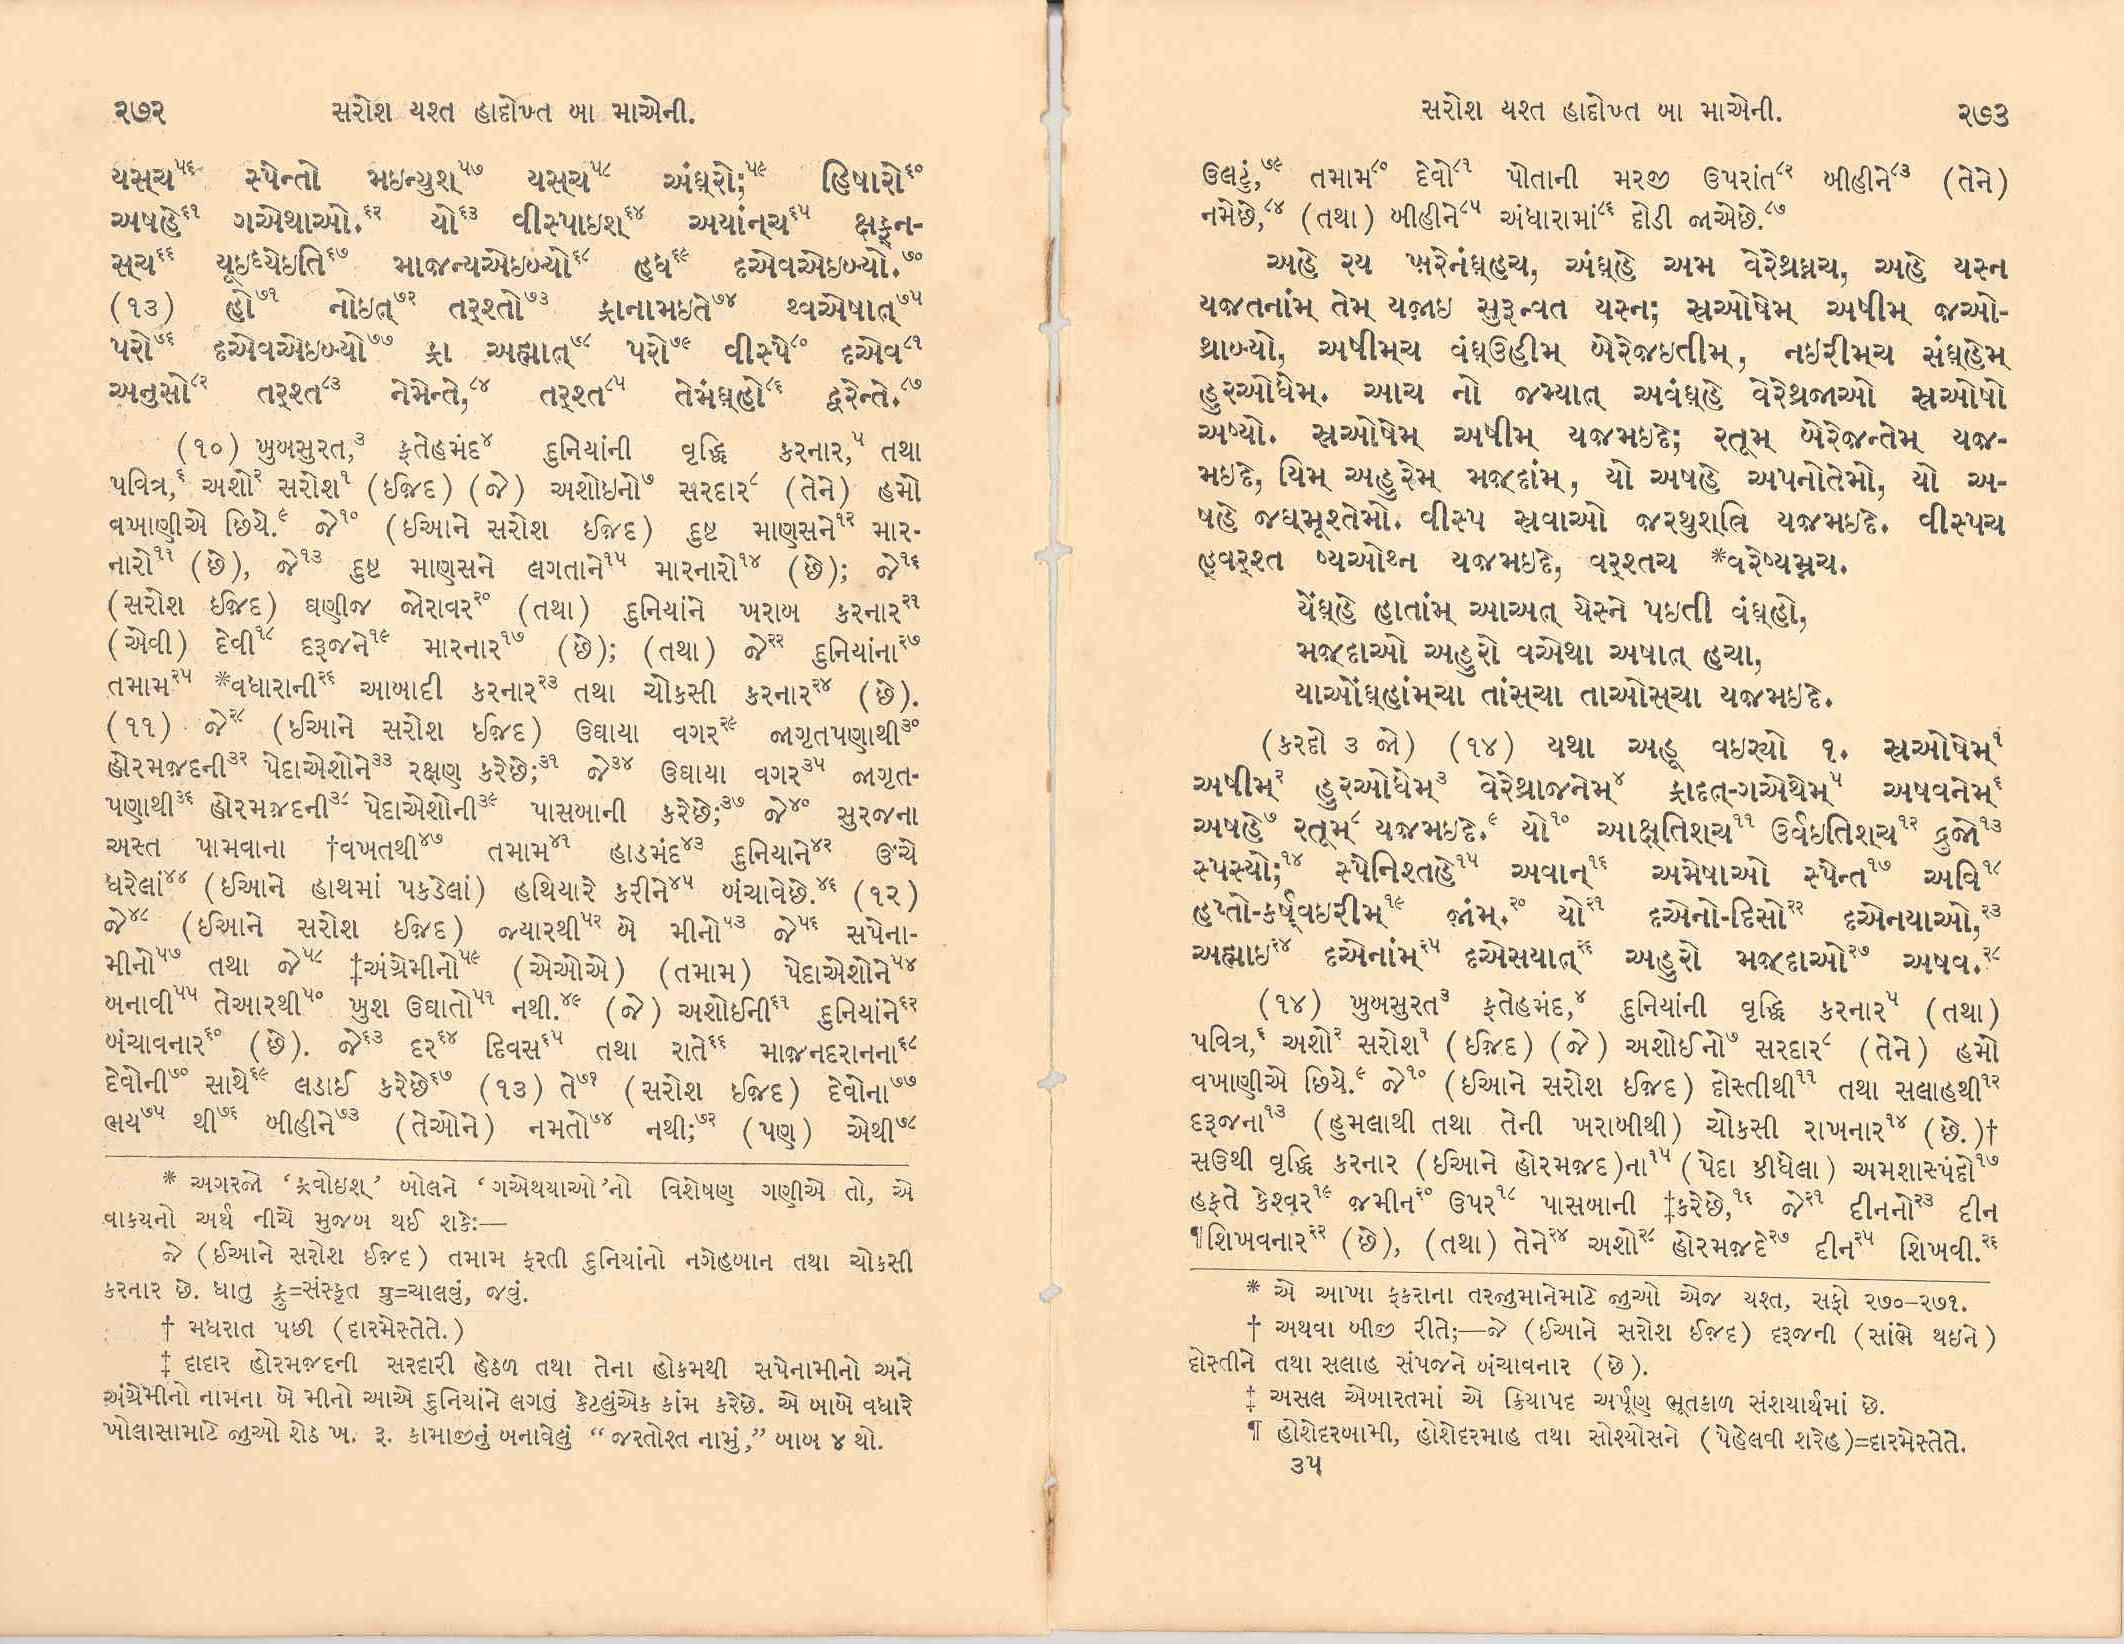 ૨૭૨ સરોશ યશ્ત હાદોખ્ત બા માએની.
યસ્ચ૫૬ સ્પેન્તો મઇન્યુશ્૫૭ યસ્ચ૫૮ અંઘ્રો;૫૯ હિષારો૬૦
અષહે૬૧ ગએથાઓ.૬૨ યો૬૩ વીસ્પાઇશ્૬૪ અયાંન્ચ૬૫ ક્ષફ્ન-
સ્ચ૬૬ યૂઇદ્યેઇતિ૬૭ માજ઼ન્યએઇબ્યો૬૮ હધ૬૯ દએવએઇબ્યો.૭૦
(૧૩) હો૭૧ નોઇત્૭૨ તર્શ્તો૭૩ ફ્રાનામઇતે૭૪ થ્વએષાત્૭૫
પરો૭૬ દએવએઇબ્યો૭૭ ફ્રા અહ્માત્૭૮ પરો૭૯ વીસ્પે૮૦ દએવ૮૧
અનુસો૮૨ તર્શ્ત૮૩ નેમેન્તે,૮૪ તર્શ્ત૮૫ તેમંઘ્હો૮૬ દ્વરેન્તે.૮૭
(૧૦) ખુબસુરત,૩ ફતેહમંદ૪ દુનિયાંની વૃદ્ધિ કરનાર,૫ તથા
પવિત્ર,૬ અશો૨ સરોશ૧ (ઇજ઼દ) (જે) અશોઇનો૭ સરદાર૮ (તેને) હમો
વખાણીએ છિયે.૯ જે૧૦ (ઈઆને સરોશ ઇજ઼દ) દુષ્ટ માણસને૧૨ માર-
નારો૧૧ (છે), જે૧૩ દુષ્ટ માણસને લગતાને૧૫ મારનારો૧૪ (છે); જે૧૬
(સરોશ ઇજ઼દ) ઘણીજ જોરાવર૨૦ (તથા) દુનિયાંને ખરાબ કરનાર૨૧
(એવી) દેવી૧૮ દરૂજને૧૯ મારનાર૧૭ (છે); (તથા) જે૨૨ દુનિયાંના૨૭
તમામ૨૫ *વધારાની૨૬ આબાદી કરનાર૨૩ તથા ચોકસી કરનાર૨૪ (છે).
(૧૧) જે૨૮ (ઈઆને સરોશ ઈજ઼દ) ઉઘાયા વગર૨૯ જાગૃતપણાથી૩૦
હોરમજ઼દની૩૨ પેદાએશોને૩૩ રક્ષણ કરેછે;૩૧ જે૩૪ ઉઘાયા વગર૩૫ જાગૃત-
પણાથી૩૬ હોરમજ઼દની૩૮ પેદાએશોની૩૯ પાસબાની કરેછે;૩૭ જે૪૦ સુરજના
અસ્ત પામવાના †વખતથી૪૭ તમામ૪૧ હાડમંદ૪૩ દુનિયાને૪૨ ઊંચે
ધરેલાં૪૪ (ઈઆને હાથમાં પકડેલાં) હથિયારે કરીને૪૫ બંચાવેછે.૪૬ (૧૨)
જે૪૮ (ઈઆને સરોશ ઈજ઼દ) જ્યારથી૫૨ બે મીનો૫૩ જે૫૬ સપેના-
મીનો૫૭ તથા જે૫૮ ‡અંગ્રેમીનો૫૯ (એઓએ) (તમામ) પેદાએશોને૫૪
બનાવી૫૫ તેઆરથી૫૦ ખુશ ઉઘાતો૫૧ નથી.૪૯ (જે) અશોઈની૬૧ દુનિયાંને૬૨
બંચાવનાર૬૦ (છે). જે૬૩ દર૬૪ દિવસ૬૫ તથા રાતે૬૬ માજ઼નદરાનના૬૮
દેવોની૭૦ સાથે૬૯ લડાઈ કરેછે૬૭ (૧૩) તે૭૧ (સરોશ ઈજ઼દ) દેવોના૭૭
ભય૭૫ થી૭૬ બીહીને૭૩ (તેઓને) નમતો૭૪ નથી;૭૨ (પણ) એથી૭૮
* અગરજો ‘ફ્રવોઇશ્’ બોલને ‘ગએથયાઓ’નો વિશેષણ ગણીએ તો, એ
વાક્યનો અર્થ નીચે મુજબ થઈ શકેઃ—
જે (ઈઆને સરોશ ઈજ઼દ) તમામ ફરતી દુનિયાંનો નગેહબાન તથા ચોકસી
કરનાર છે. ધાતુ ફ્રુ=સંસ્કૃત પ્રુ=ચાલવું, જવું.
† મધરાત પછી (દારમેસ્તેતે.)
‡ દાદાર હોરમજ઼દની સરદારી હેઠળ તથા તેના હોકમથી સપેનામીનો અને
અંગ્રેમીનો નામના બે મીનો આએ દુનિયાંને લગતું કેટલુંએક કાંમ કરેછે. એ બાબે વધારે
ખોલાસામાટે જુઓ શેઠ ખ. રૂ. કામાજીનું બનાવેલું “જરતોશ્ત નામું,” બાબ ૪ થો.
સરોશ યશ્ત હાદોખ્ત બા માએની. ૨૭૩
ઉલટું,૭૯ તમામ૮૦ દેવો૮૧ પોતાની મરજી ઉપરાંત૮૨ બીહીને૮૩ (તેને)
નમેછે,૮૪ (તથા) બીહીને૮૫ અંધારામાં૮૬ દોડી જાએછે.૮૭
અહે રય ખ઼રેનંઘ્હચ, અંઘ્હે અમ વેરેથ્રઘ્નચ, અહે યસ્ન
યજ઼તનાંમ્ તેમ્ યજ઼ાઇ સુરૂન્વત યસ્ન; સ્રઓષેમ્ અષીમ્ જ઼ઓ-
થ્રાબ્યો, અષીમ્ચ વંઘ્ઉહીમ્ બેરેજ઼ઇતીમ્, નઇરીમ્ચ સંઘ્હેમ્
હુરઓધેમ્. આચ નો જમ્યાત્ અવંઘ્હે વેરેથ્રજાઓ સ્રઓષો
અષ્યો. સ્રઓષેમ્ અષીમ્ યજ઼મઇદે; રતૂમ્ બેરેજ઼ન્તેમ્ યજ઼-
મઇદે, યિમ્ અહુરેમ્ મજ઼્દાંમ્, યો અષહે અપનોતેમો, યો અ-
ષહે જઘ્મૂશ્તેમો. વીસ્પ સ્રવાઓ જ઼રથુશ્ત્રિ યજ઼મઇદે. વીસ્પચ
હ્વર્શ્ત ષ્યઓથ્ન યજ઼મઇદે, વર્શ્તચ *વરેષ્યમ્નચ.
યેંઘ્હે હાતાંમ્ આઅત્ યેસ્ને પઇતી વંઘ્હો,
મજ઼્દાઓ અહુરો વએથા અષાત્ હચા,
યાઓંઘ્હાંમ્ચા તાંસ્ચા તાઓસ્ચા યજ઼મઇદે.
(કરદો ૩ જો) (૧૪) યથા અહૂ વઇર્યો ૧. સ્રઓષેમ્૧
અષીમ્૨ હુરઓધેમ્૩ વેરેથ્રાજનેમ્૪ ફ્રાદત્-ગએથેમ્૫ અષવનેમ્૬
અષહે૭ રતૂમ્૮ યજ઼મઇદે.૯ યો૧૦ આક્ષ્તિશ્ચ૧૧ ઉર્વઇતિશ્ચ૧૨ દ્રુજો૧૩
સ્પસ્યો;૧૪ સ્પેનિશ્તહે૧૫ અવાન્૧૬ અમેષાઓ સ્પેન્ત૧૭ અવિ૧૮
હપ્તો-કર્ષ્વઇરીમ્૧૯ જ઼ાંમ્.૨૦ યો૨૧ દએનો-દિસો૨૨ દએનયાઓ,૨૩
અહ્માઇ૨૪ દએનાંમ્૨૫ દએસયાત્૨૬ અહુરો મજ઼્દાઓ૨૭ અષવ.૨૮
(૧૪) ખુબસુરત૩ ફતેહમંદ,૪ દુનિયાંની વૃદ્ધિ કરનાર૫ (તથા)
પવિત્ર,૬ અશો૨ સરોશ૧ (ઈજ઼દ) (જે) અશોઈનો૭ સરદાર૮ (તેને) હમો
વખાણીએ છિયે.૯ જે૧૦ (ઈઆને સરોશ ઈજ઼દ) દોસ્તીથી૧૧ તથા સલાહથી૧૨
દરૂજના૧૩ (હુમલાથી તથા તેની ખરાબીથી) ચોકસી રાખનાર૧૪ (છે.)†
સઉથી વૃદ્ધિ કરનાર (ઈઆને હોરમજ઼દ)ના૧૫ (પેદા કીધેલા) અમશાસ્પંદો૧૭
હફતે કેશ્વર૧૯ જમીન૨૦ ઉપર૧૮ પાસબાની ‡કરેછે,૧૬ જે૨૧ દીનનો૨૩ દીન
¶શિખવનાર૨૨ (છે), (તથા) તેને૨૪ અશો૨૮ હોરમજ઼દે૨૭ દીન૨૫ શિખવી.૨૬
* એ આખા ફકરાના તરજુમાનેમાટે જુઓ એજ યશ્ત, સફો ૨૭૦–૨૭૧.
† અથવા બીજી રીતે;—જે (ઈઆને સરોશ ઈજ઼દ) દરૂજની (સાંભે થઇને)
દોસ્તીને તથા સલાહ સંપજને બંચાવનાર (છે).
‡ અસલ એબારતમાં એ ક્રિયાપદ અર્પૂણ ભૂતકાળ સંશયાર્થમાં છે.
¶ હોશેદરબામી, હોશેદરમાહ તથા સોશ્યોસને (પેહેલવી શરેહ)=દારમેસ્તેતે.
૩૫